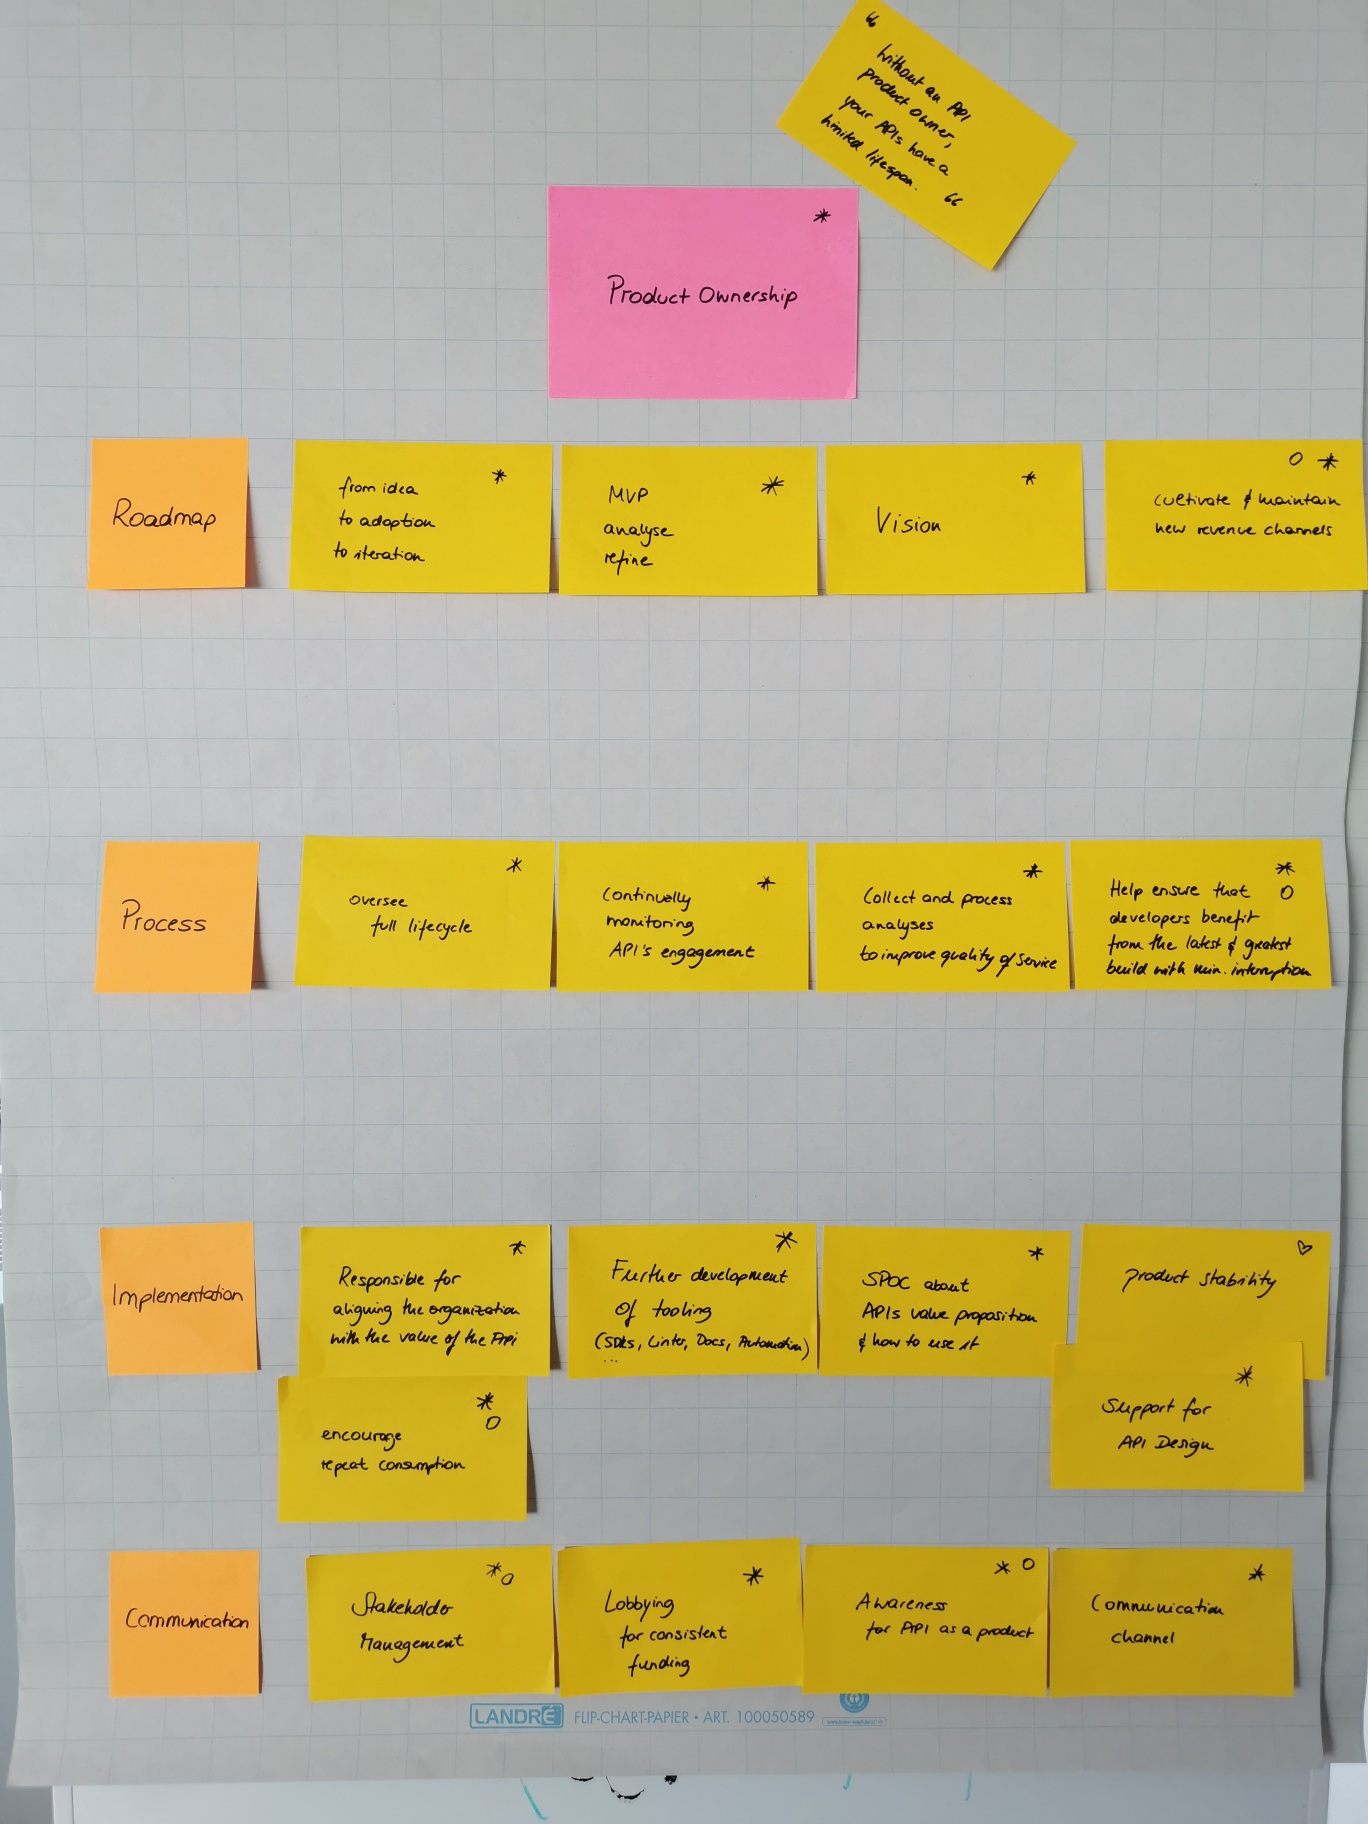 “
Without an API
product owner,
your APIs have a
limited lifespan. “
*
Product Ownership
Roadmap
*
from idea
to adoption
to iteration
*
MVP
analyse
refine
*
Vision
O *
cultivate & maintain
new revenue channels
Process
*
oversee
full lifecycle
*
Continually
monitoring
API's engagement
*
Collect and process
analyses
to improve quality of Service
*
O
Help ensure that
developers benefit
from the latest & greatest
build with min. interruption
Implementation
*
Responsible for
aligning the organization
with the value of the API
*
Further development
of tooling
(SDKs, Linter, Docs, Automation)
...
*
SPOC about
APIs value proposition
& how to use it
♡
product stability
*
O
encourage
repeat consumption
*
Support for
API Design
Communication
* O
Stakeholder
Management
*
Lobbying
for consistent
funding
* O
Awareness
for API as a product
*
Communication
channel
LANDRÉ FLIP-CHART-PAPIER • ART. 100050589